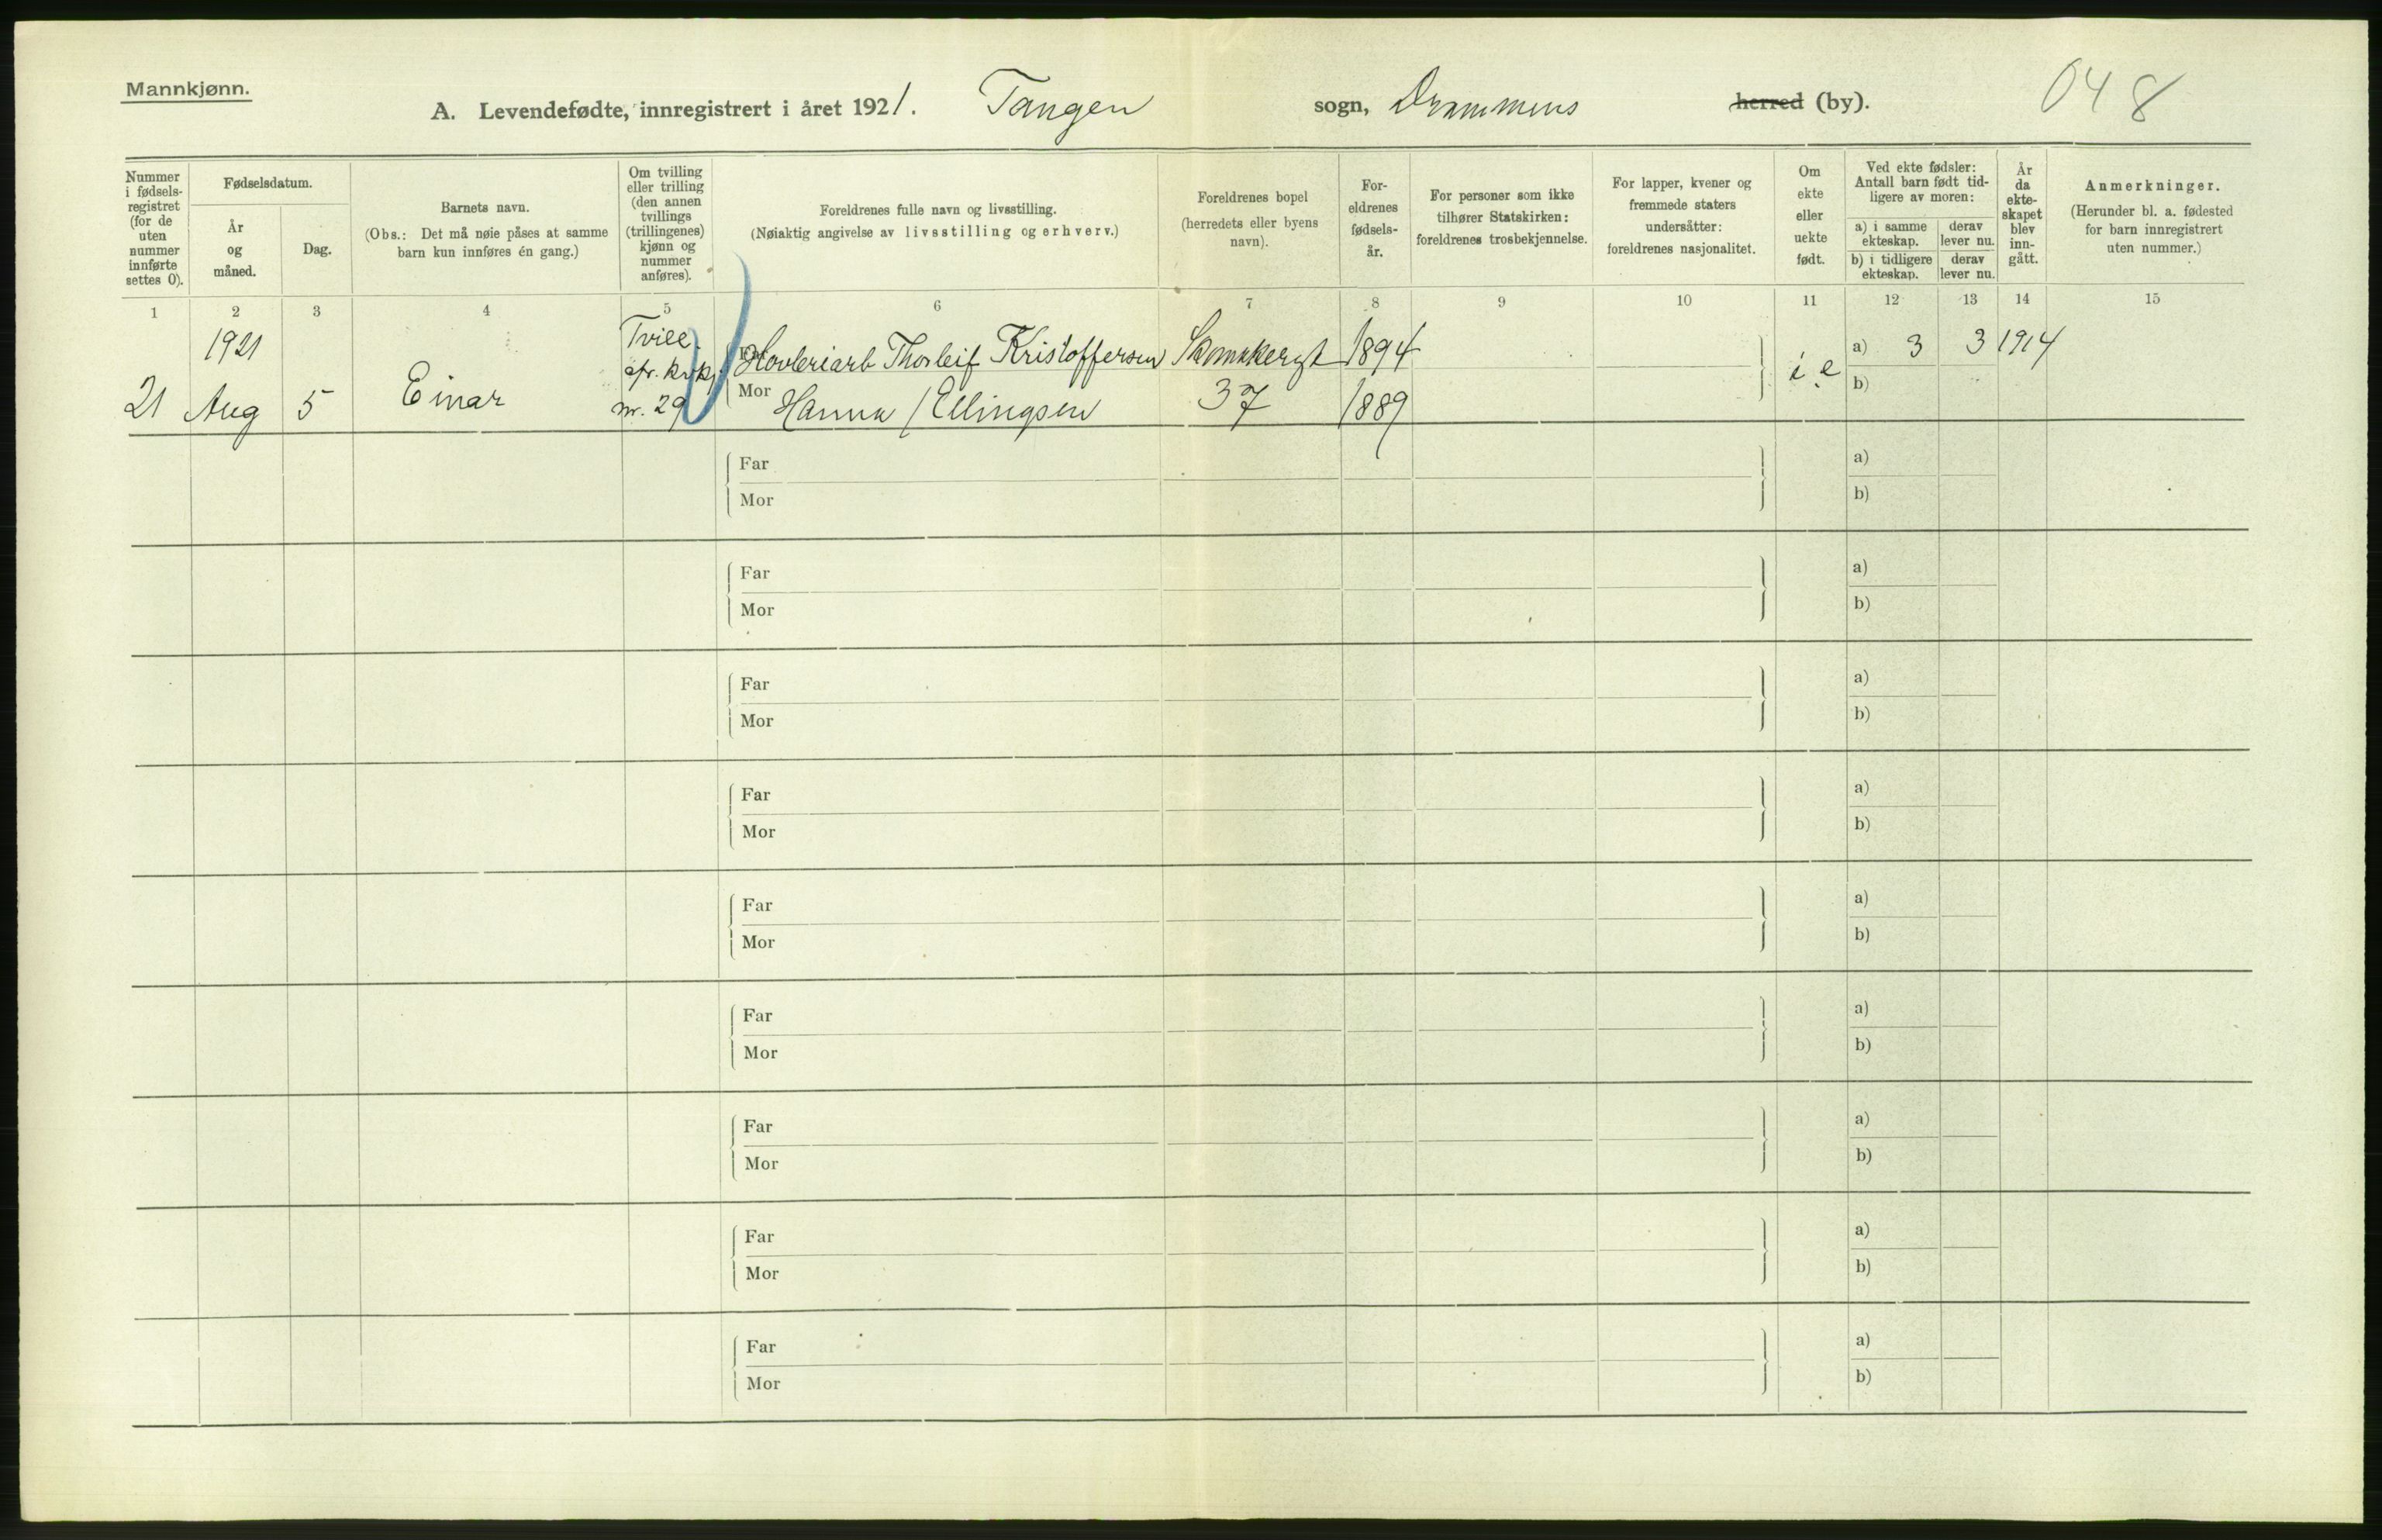 Mannkjønn.
A. Levendefødte, innregistrert i året 1921. Tangen sogn, Drammens herred (by). 048
Nummer i fødsels-registret (for de uten nummer innførte settes 0).
Fødselsdatum.
År og måned.
Dag.
Barnets navn.
(Obs.: Det må nøie påses at samme barn kun innføres én gang.)
Om tvilling eller trilling (den annen tvillings (trillingenes) kjønn og nummer anføres).
Foreldrenes fulle navn og livsstilling.
(Nøiaktig angivelse av livsstilling og erhverv.)
Foreldrenes bopel (herredets eller byens navn).
For-eldrenes fødsels-år.
For personer som ikke tilhører Statskirken: foreldrenes trosbekjennelse.
For lapper, kvener og fremmede staters undersåtter: foreldrenes nasjonalitet.
Om ekte eller uekte født.
Ved ekte fødsler: Antall barn født tid-ligere av moren:
a) i samme ekteskap.
derav lever nu.
b) i tidligere ekteskap.
derav lever nu.
År da ekte-skapet blev inn-gått.
Anmerkninger.
(Herunder bl. a. fødested for barn innregistrert uten nummer.)
1 2 3 4 5 6 7 8 9 10 11 12 13 14 15
1921 Tvill. Far Høvleriarb Thorleif Kristoffersen 1894 a) 3 3 1914
21 Aug 5 Einar nr. 29 Mor Hanna / Ellingsen 37 1889 i e b)
Far a)
Mor b)
Far a)
Mor b)
Far a)
Mor b)
Far a)
Mor b)
Far a)
Mor b)
Far a)
Mor b)
Far a)
Mor b)
Far a)
Mor b)
Far a)
Mor b)